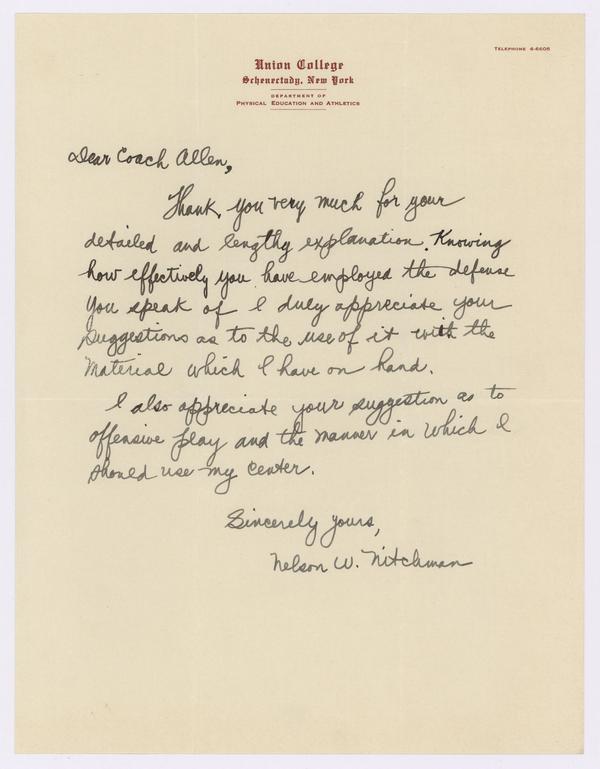 Telephone 4-6605
Union College
Schenectady, New York
Department of
Physical Education and Athletics
Dear Coach Allen,
Thank you very much for your
detailed and lengthy explanation. Knowing
how effectively you have employed the defense
you speak of I duly appreciate your
suggestions as to the use of it with the
material which I have on hand.
I also appreciate your suggestion as to
offensive play and the manner in which I
should use my center.
Sincerely yours,
Nelson W. Nitchman